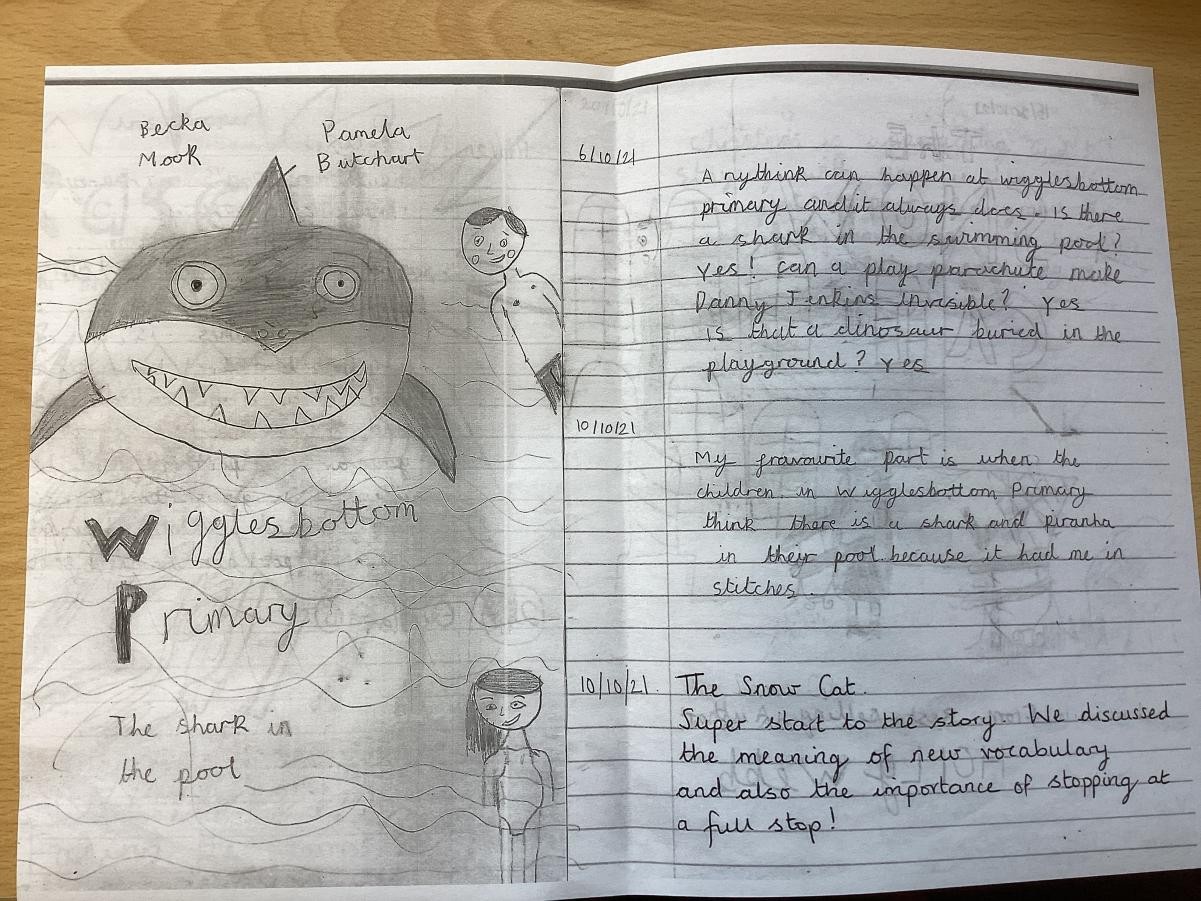 Becka
Mook
Pamela
Butchart
Wigglesbottom
Primary
The shark in
the pool
6/10/21
Anythink can happen at wigglesbottom
primary and it always does. is there
a shark in the swimming pool?
Yes! can a play parachute make
Danny Jenkins invisible? Yes
is that a dinosaur buried in the
playground? Yes
10/10/21
My fravourite part is when the
children in Wigglesbottom Primary
think there is a shark and piranha
in their pool because it had me in
stitches.
10/10/21. The Snow Cat.
Super start to the story. We discussed
the meaning of new vocabulary
and also the importance of stopping at
a full stop!